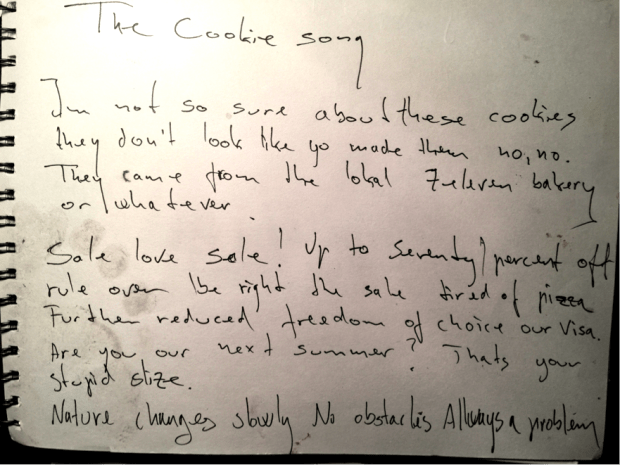 The Cookie song
Im not so sure about these cookies
they don't look like yo made them no, no.
They came from the lokal 7eleven bakery
or whatever.
Sale love sale! Up to Seventy percent off
rule over the right the sale tired of pizza
Further reduced freedom of choice our Visa.
Are you our next summer? Thats your
stupid size.
Nature changes slowly No obstacles Allways a problem